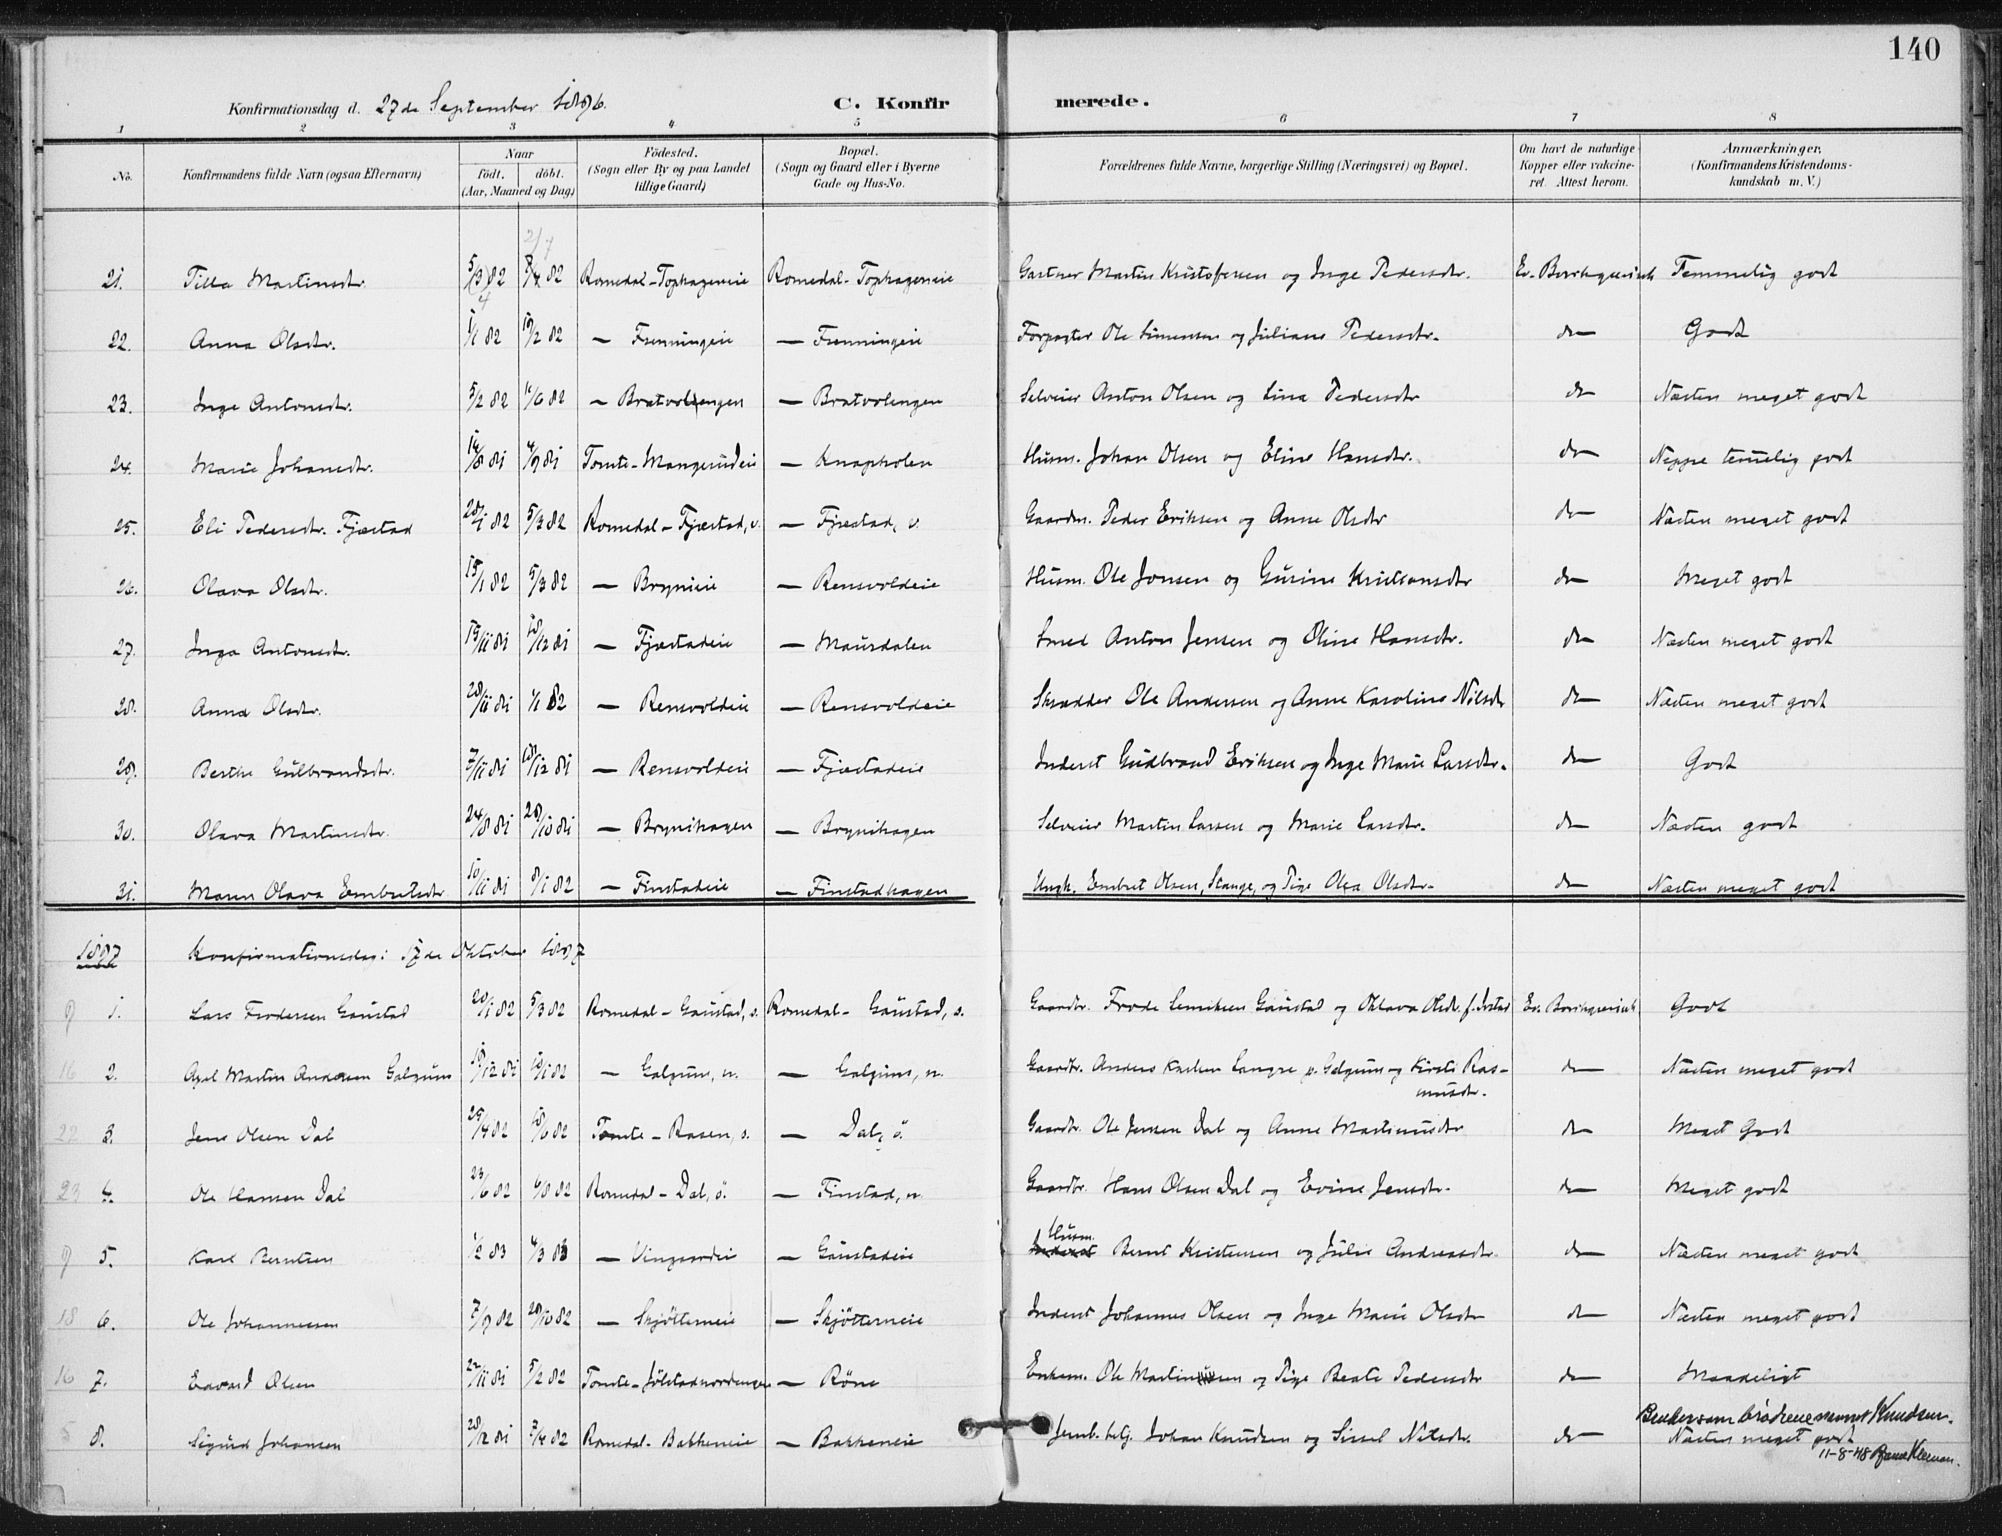 140
Konfirmationsdag d. 27de September 1896. C. Konfirmerede.
1 2 3 4 5 6 7 8
No. Konfirmandens fulde Navn (ogsaa Efternavn) Naar födt. döbt. (Aar, Maaned og Dag) Födested. (Sogn eller By og paa Landet tillige Gaard) Bopæl. (Sogn og Gaard eller i Byerne Gade og Hus-No. Forældrenes fulde Navne, borgerlige Stilling (Næringsvei) og Bopæl. Om havt de naturlige Kopper eller vakcineret. Attest herom. Anmærkninger. (Konfirmandens Kristendomskundskab m. V.)
2/4
21. Tilla Martinsdtr. 82 82 Romedal-Tophageneie Romedal-Tophageneie Gartner Martin Kristofersen og Inge Pedersdtr. Temmelig godt
22. Anna Olsdtr. 1/1 82 19/2 82 — Frenningeie — Frenningeie Forpagter Ole Simensen og Juliane Pedersdtr. do Godt
23. Inge Antonsdtr. 5/2 82 11/6 82 — Bratvolengen — Bratvolengen Selveier Anton Olsen og Lina Pedersdtr do Næsten meget godt
24. Marie Johansdtr. 14/8 81 4/9 81 Tomte-Mangerudeie — Knapholen Husm. Johan Olsen og Eline Hansdtr. do Neppe temelig godt
25. Eli Pedersdtr. Fjæstad 28/1 82 5/3 82 Romedal-Fjæstad, v. — Fjæstad, v. Gaardm. Peder Eriksen og Anne Olsdtr do Næsten meget godt
26. Olava Olsdtr. 15/1 82 5/3 82 — Brynieie — Rensvoldeie Husm. Ole Jonsen og Gurine Kristiansdtr do Meget godt
27. Inga Antonsdtr. 15/11 81 18/12 81 — Fjæstadeie — Maursdalen Smed Anton Jensen og Oline Hansdtr. do Næsten meget godt
28. Anna Olsdtr. 28/11 81 1/1 82 — Rensvoldeie — Rensvoldeie Skrædder Ole Andersen og Anne Karoline Nilsdtr do Næsten meget godt
29. Berthe Gulbrandsdtr. 7/11 81 18/12 81 — Rensvoldeie — Fjæstadeie Inderst Gudbrand Eriksen og Inge Marie Larsdtr. do Godt
30. Olava Martinsdtr. 24/8 81 28/10 81 — Brynihagen — Brynihagen Selveier Martin Larsen og Marie Larsdtr. do Næsten godt
31. Maren Olava Embretsdtr 10/11 81 8/1 82 — Finstadeie — Finstadhagen Ungk. Embret Olsen, Stange, og Pige Olea Olsdtr. do Næsten meget godt
1897 Konfirmationsdag: 17de Oktober 1897
9 1. Lars Frodesen Gaustad 20/1 82 5/3 82 Romedal-Gaustad, s. Romedal-Gaustad, s. Gaardbr. Frode Gaustad og Oklava Olsdtr. Godt
16 2. Axel Martin Andersen Galgum 19/12 81 82 — Galgum, n. — Galgum, n. Gaardbr. Anders Karlsen Langre p. Galgum og Kirsti Ras-
musdtr. do Næsten meget godt
22 3. Jens Olsen Dal 29/4 82 18/6 82 Tomte-Rasen, s. — Dal, ö. Gaardbr. Ole Jensen Dal og Anne Martinusdtr do Meget Godt
23 4. Ole Hansen Dal 23/6 82 6/8 82 Romedal-Dal, ö. — Finstad, n. Gaardbr. Hans Olsen Dal og Evine Jensdtr. do Meget godt
9 5. Karl Berntsen 1/2 83 4/3 83 — Vingaardeie — Gaustadeie Husm. Bernt Kristensen og Julie Andreasdtr. do Næsten meget godt
18 6. Ole Johannessen 7/9 82 28/10 82 — Skjötterneie — Skjötterneie Inderst Johannes Olsen og Inge Marie Olsdtr do Næsten meget godt
16 7. Edvard Olsen 22/11 81 5/2 82 Tomte-Jölstadnordengen — Röne Enkem. Ole Martinsen og Pige Beate Pedersdtr do Maadeligt
5 8. Sigurd Johansen 28/12 81 7/4 82 Romedal-Bakkeneie — Bakkeneie Jernb. btj. Johan Knudsen og Sissel Nilsdtr. do Bruker som brödrene navnet Knudsen.
Næsten meget godt
11-8-48